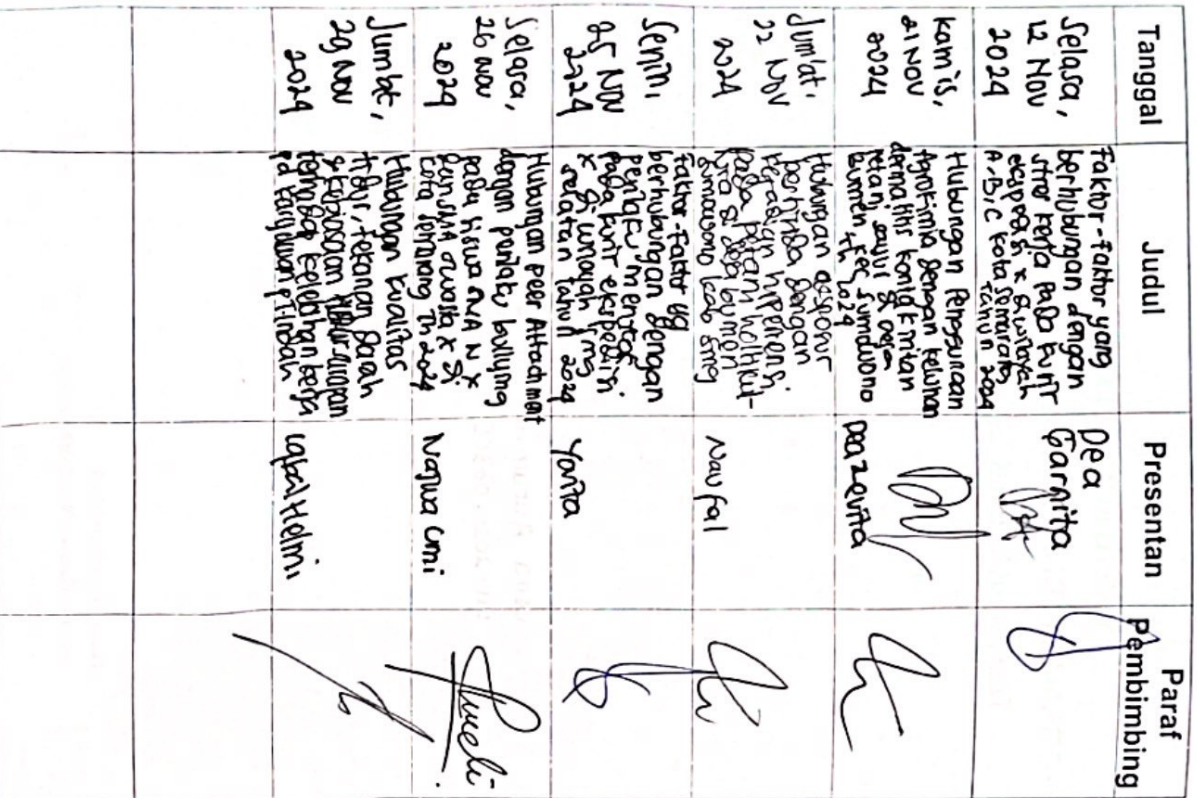 Tanggal
Judul
Presentan
Paraf
Pembimbing
Selasa,
12 Nov
2024
Faktor-faktor yang
berhubungan dengan
stres kerja pada kurir
ekspedisi x di wilayah
A-B, C Kota Semarang
Tahun 2024
Dea
Garnita
Kamis,
21 Nov
2024
Hubungan Penggunaan
Agrokimia dengan keluhan
dermatitis kontak iritan
petani sayur di desa
Bumen, Kec Sumowono
th 2024
Dea zevita
Jumlat,
22 Nov
2024
Hubungan
pestisida dengan
Kejadian hipertensi
pada petani
di desa bumen
Sumowono kab smg
Naufal
Senin,
25 Nov
2024
Faktor-Faktor yg
berhubungan dengan
perilaku
pada kurir ekspedisi
x di wilayah smg
selatan tahun 2024
Yanita
Selasa,
26 Nov
2024
Hubungan peer Attachment
dengan perilaku bullying
pada siswa SMA N x
dan SMA swasta x di
Kota Semarang Th 2024
Najwa Umi
Jumlat,
29 Nov
2024
Hubungan kualitas
tidur, tekanan darah
terhadap kelelahan kerja
pd karyawan pt. Indah
Iqbal Helmi